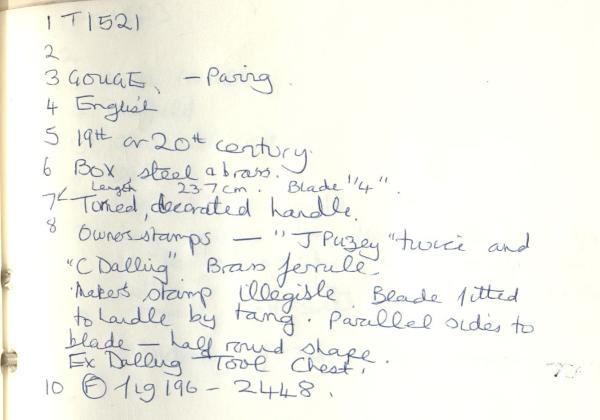 1 T1521
2
3 GOUGE, - Paring.
4 English
5 19th or 20th century.
6 Box, steel & brass.
Length 23.7 cm. Blade "1/4".
7 Turned, decorated handle.
8 Owners stamps — "J Puzey" twice and
"C Dalling". Brass ferrule.
Makers stamp illegible. Blade fitted
to handle by tang. Parallel sides to
blade — half round shape.
Ex Dalling Tool Chest.
10 (F) fig 196 - 2448.